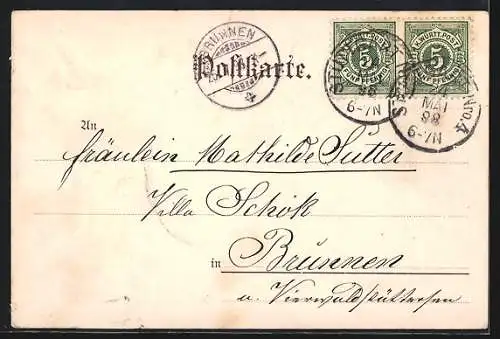 BRUNNEN
Postkarte.
K. WÜRTT. POST
5
FÜNF PFENNIG
K. WÜRTT. POST
5
FÜNF PFENNIG
STUTTGART
98
6-7N
STUTTGART Nro. 4
24
MAI
98
6-7N
An
fräulein Mathilde Sutter
Villa Schök
in Brünnen
u. Vierwaldstättersee